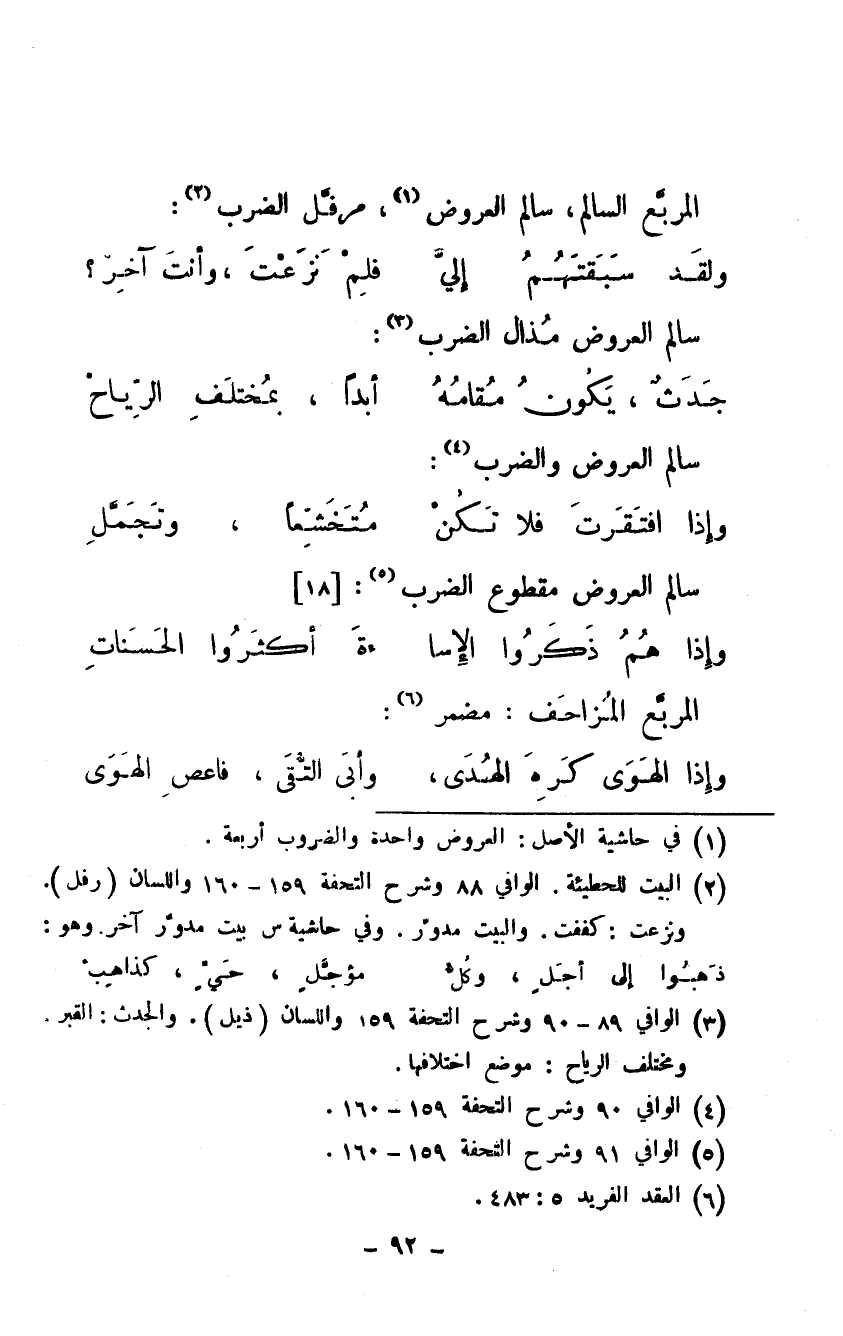 المربَّع السالم، سالم العروض (١)، مرفَّل الضرب (٢):
ولقَد سَبَقتَهُمُ إليَّ فلِمْ نَزَعْتَ، وأنتَ آخِرْ؟
سالم العروض مُذال الضرب (٣):
جَدَثٌ، يَكُونُ مُقامُهُ أبداً، بمُختلَفِ الرِّياحْ
سالم العروض والضرب (٤):
وإذا افتَقَرتَ فلا تَكُنْ مُتَخَشِّعاً، وتَجَمَّلِ
سالم العروض مقطوع الضرب (٥): [١٨]
وإذا هُمُ ذَكَرُوا الإسا ءةَ أكثَرُوا الحَسَناتِ
المربَّع المُزاحَف: مضمر (٦):
وإذا الهَوَى كَرِهَ الهُدَى، وأبَى التُّقَى، فاعصِ الهَوَى
(١) في حاشية الأصل: العروض واحدة والضروب أربعة.
(٢) البيت للحطيئة. الوافي ٨٨ وشرح التحفة ١٥٩ – ١٦٠ واللسان (رفل).
ونزعت: كففت. والبيت مدوّر. وفي حاشية س بيت مدوّر آخر. وهو:
ذَهبُوا إلى أجَلٍ، وكُلٌّ مؤجَّلٍ، حَيٍّ، كذاهِبْ
(٣) الوافي ٨٩ – ٩٠ وشرح التحفة ١٥٩ واللسان (ذيل). والجدث: القبر.
ومختلف الرياح: موضع اختلافها.
(٤) الوافي ٩٠ وشرح التحفة ١٥٩ – ١٦٠.
(٥) الوافي ٩١ وشرح التحفة ١٥٩ – ١٦٠.
(٦) العقد الفريد ٥: ٤٨٣.
– ٩٢ –